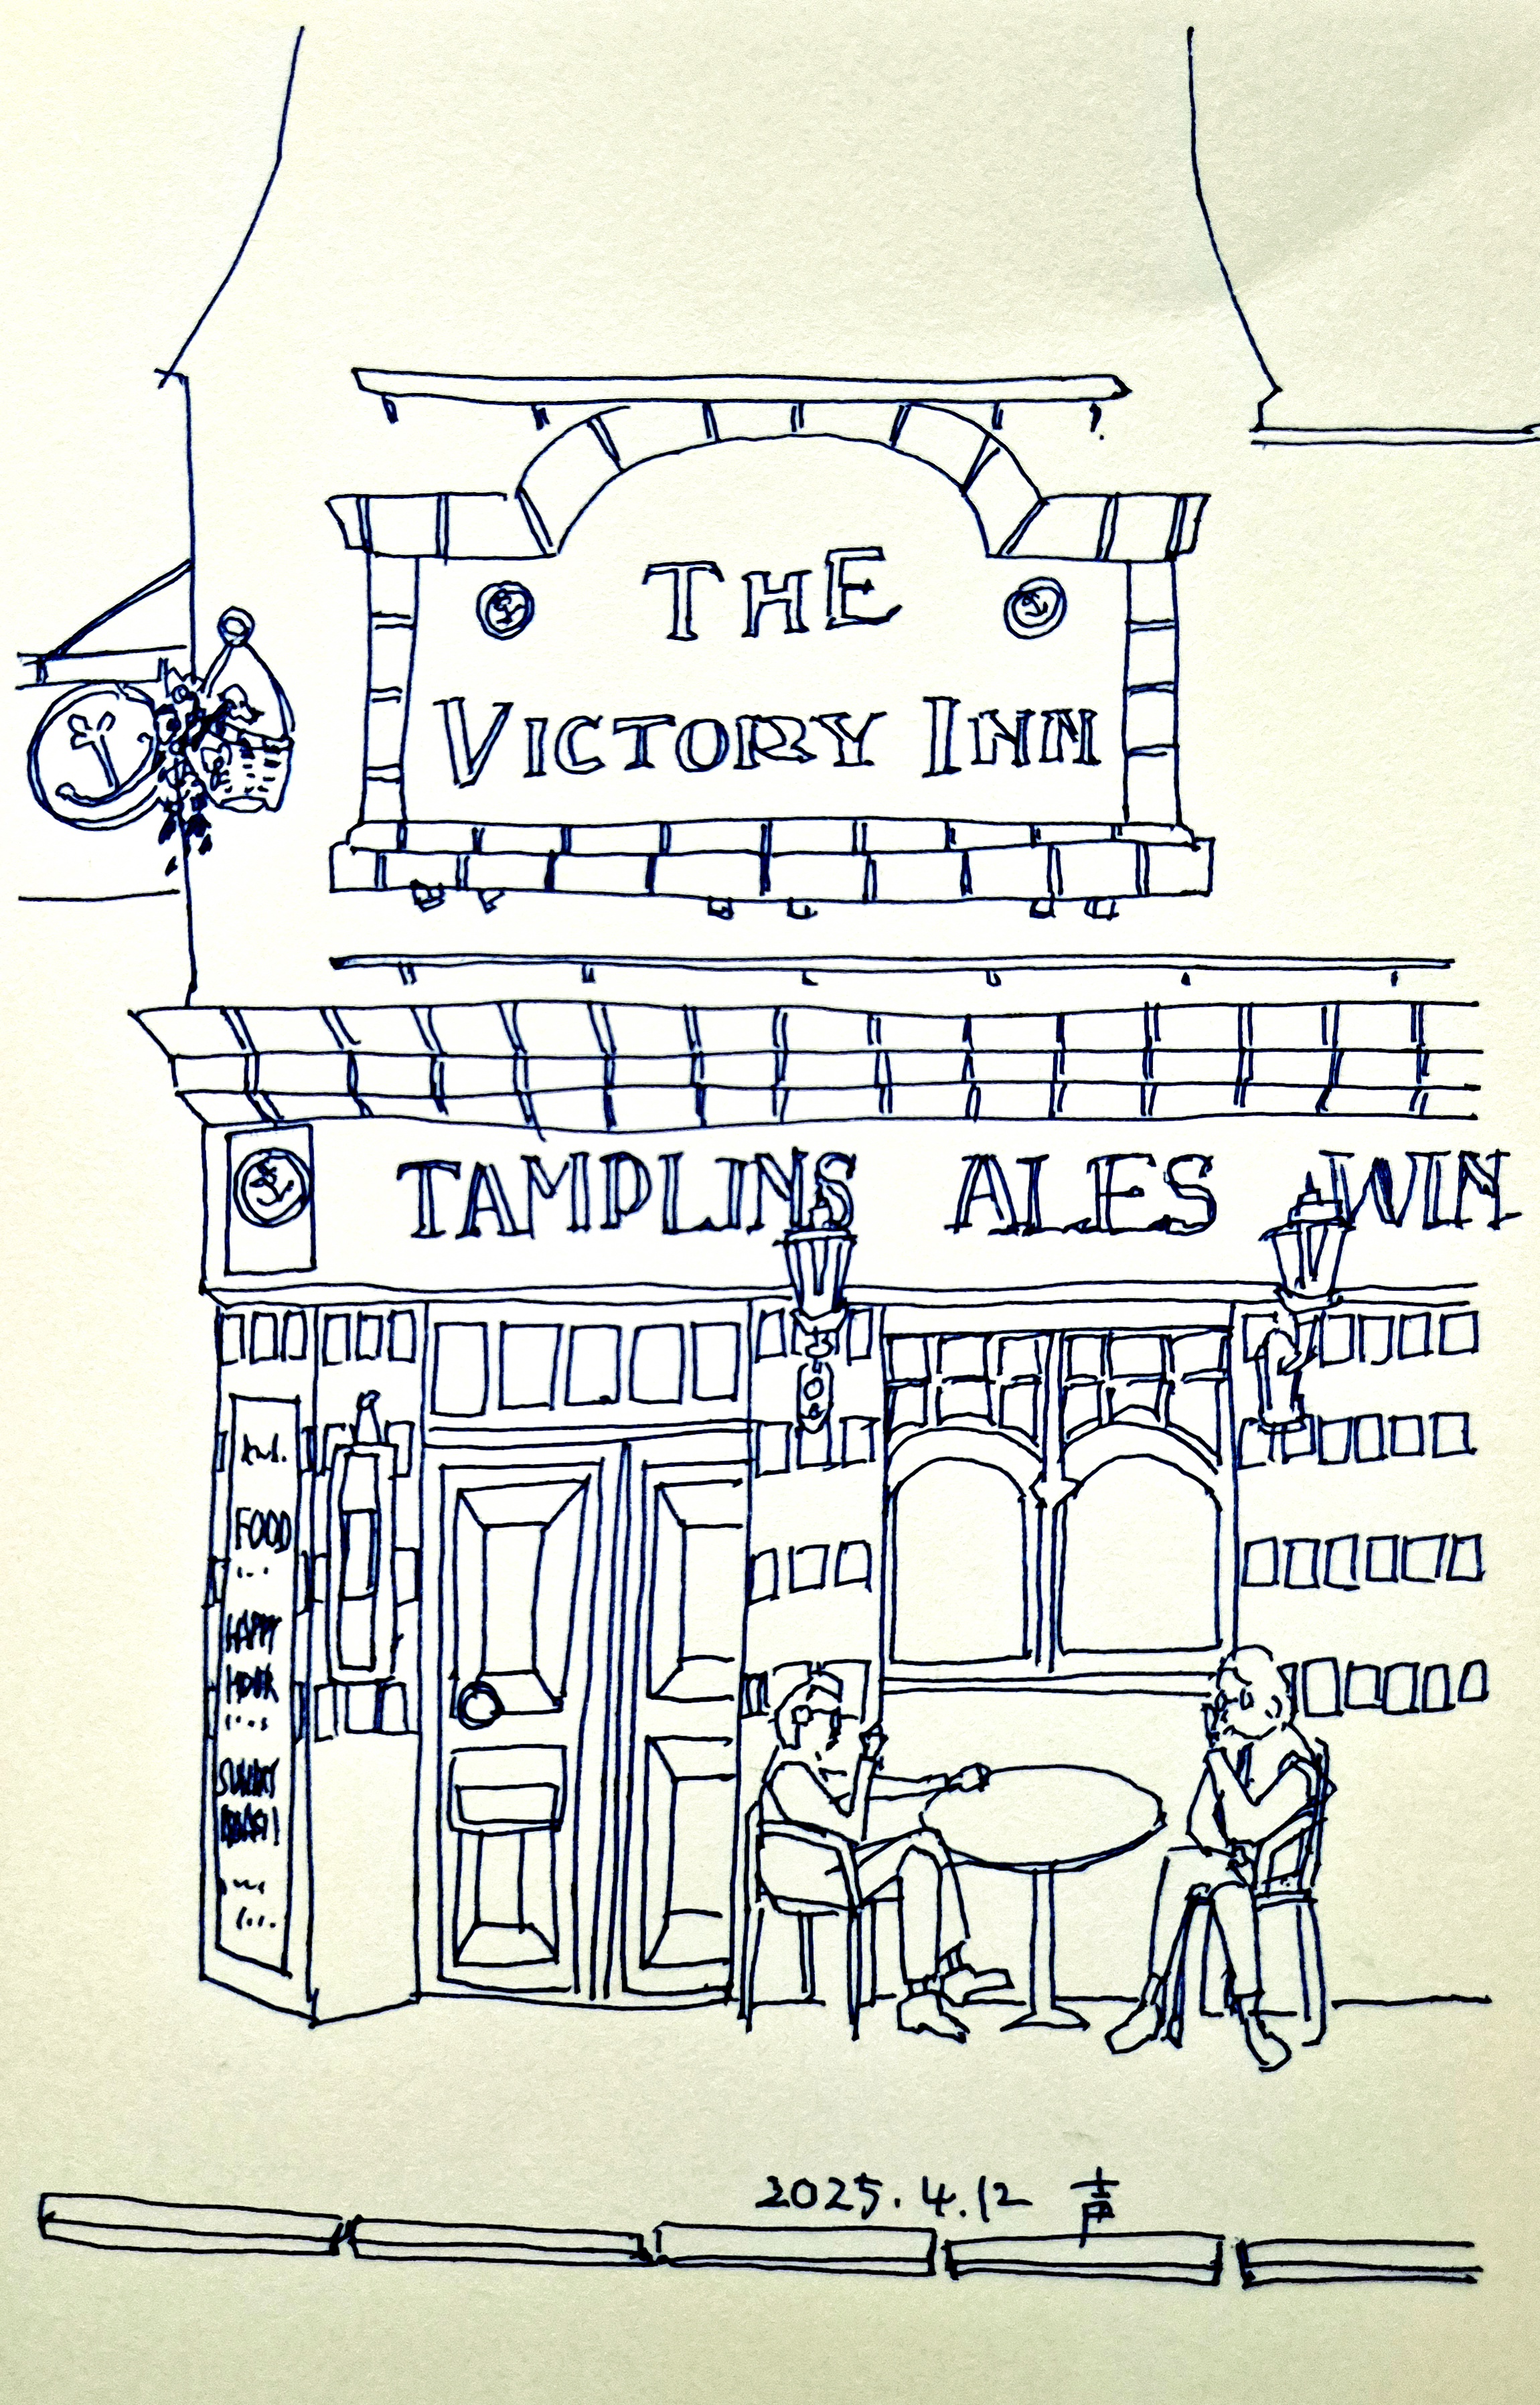 THE
VICTORY INN
TAMPLINS ALES WIN
FOOD
HAPPY
HOUR
SUNDAY
ROAST
2025.4.12 声